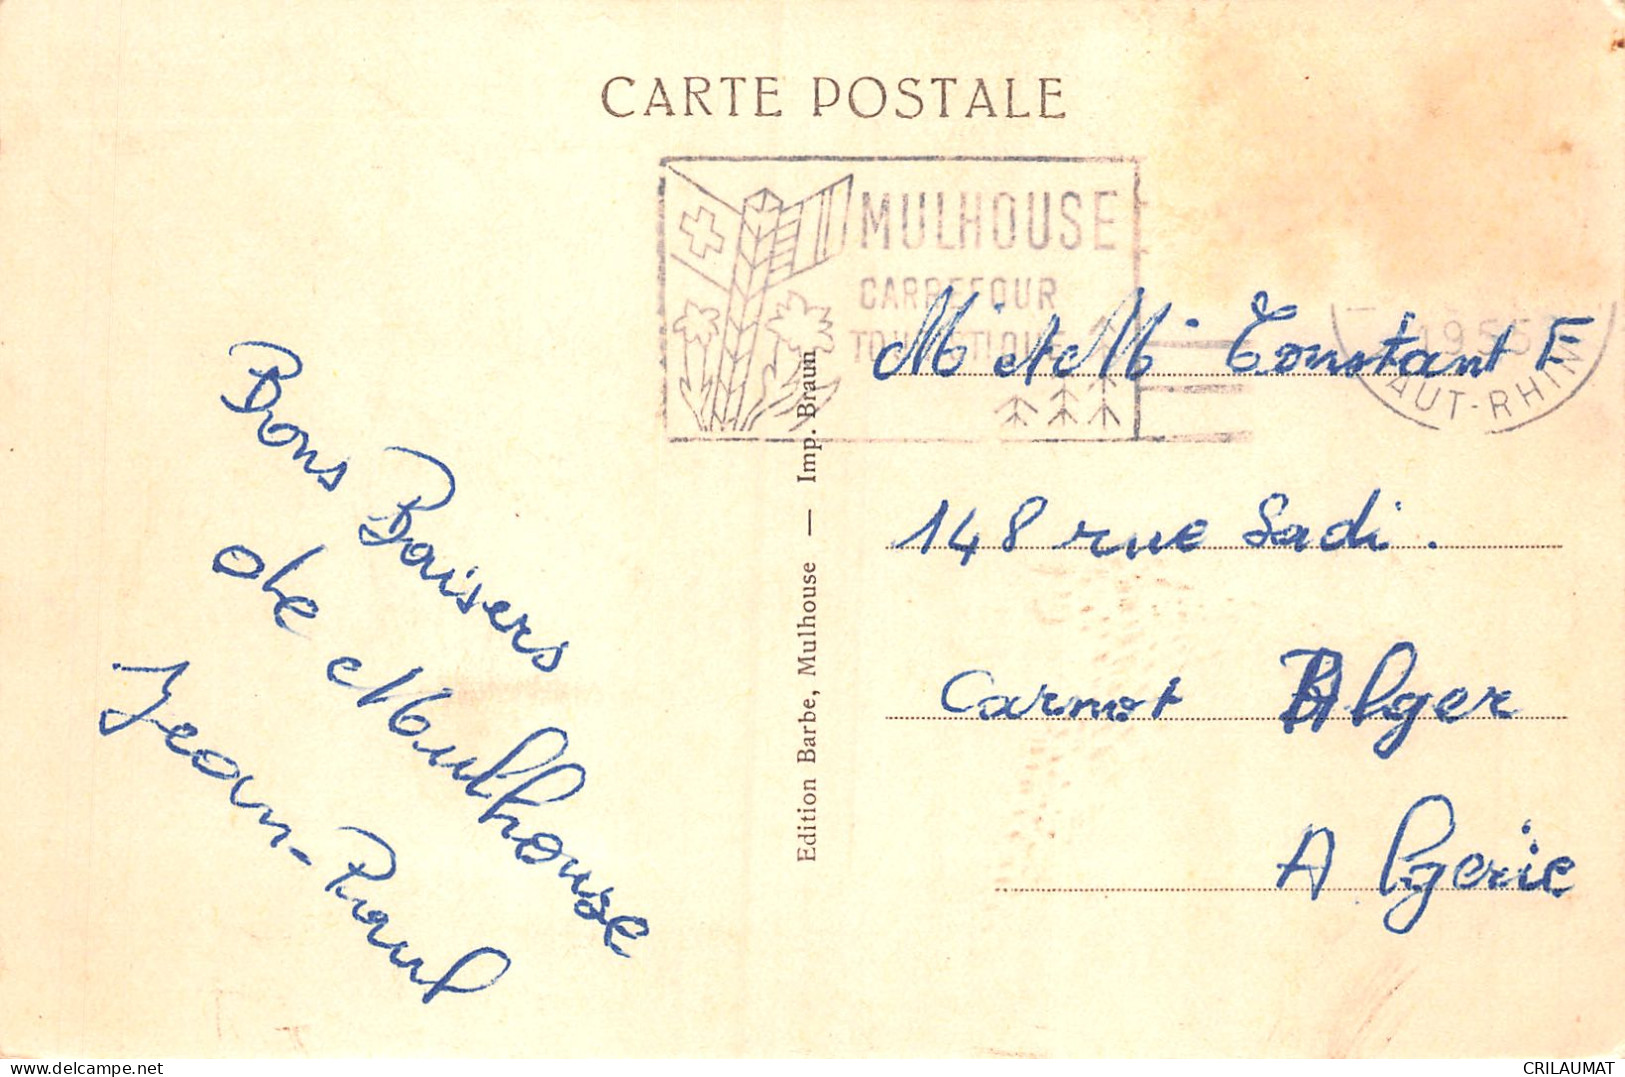 CARTE POSTALE
MULHOUSE
CARREFOUR
TOURISTIQUE
1955
HAUT-RHIN
Bons Baisers
de Mulhouse
Jean-Paul
Edition Barbe, Mulhouse — Imp. Braun
M et M Constant F
148 rue Sadi.
Carmot Alger
Algerie
www.delcampe.net
CRILAUMAT